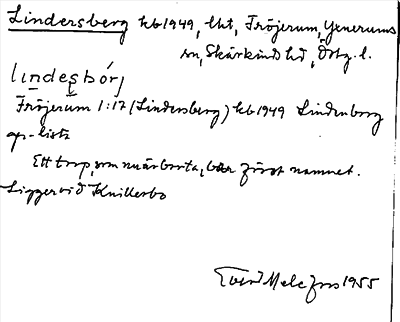 Lindersberg kb 1949, lht, Fröjerum, Yxnerums
sn, Skärkinds hd, Östg. l.
lindesbórj
Fröjerum 1:17 (Lindersberg) kb 1949 Lindenborg
ap-lista
Ett torp, som nu är borta, bar förut namnet.
Ligger vid Knillerbo
1955